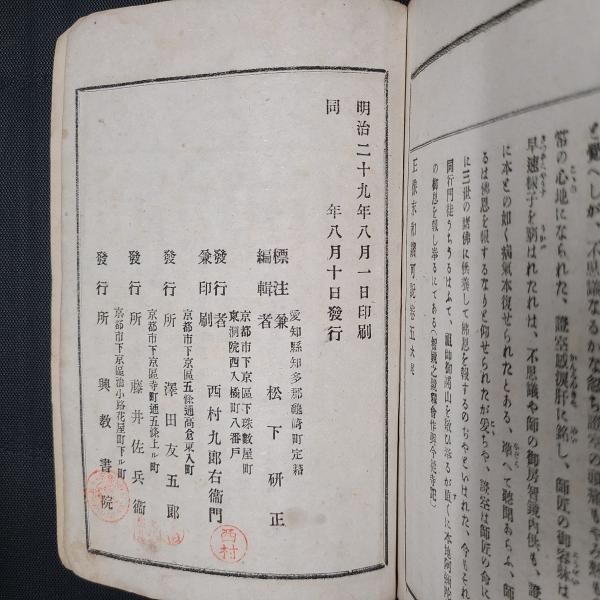 と覺へしが、不思議なるかな忽ち證空の頭痛もやみ熱も
常の心地になられた、證空感涙肝に銘し、師匠の御容躰は
早速様子を窺はれたれは、不思議や師の御房智鏡内供も、證
に本との如く病氣本復せられたとある、準へて聽聞あらふ、師
るは佛恩を報するなりと仰せられたが爰ちや、證空は師匠の命に
に三世の諸佛に供養して佛恩を報するのちやといはれた、今もそれ
同行門徒うちうるはふて、祖師御開山を敬ひ奉るが直くに本地阿彌陀
の御恩を報し奉るにてある
正像末和讃可記巻五大尾
明治二十九年八月一日印刷
同 年八月十日發行
愛知縣知多郡龜崎町定籍
標注兼編輯者 松下研正
京都市下京區下珠數屋町
東洞院西入橘町八番戸
發行者兼印刷 西村九郎右衞門
西村
京都市下京區五條通高倉東入町
發行所 澤田友五郎
京都市下京區寺町通五條上ル町
發行所 藤井佐兵衞
京都市下京區油小路花屋町下ル町
發行所 興教書院